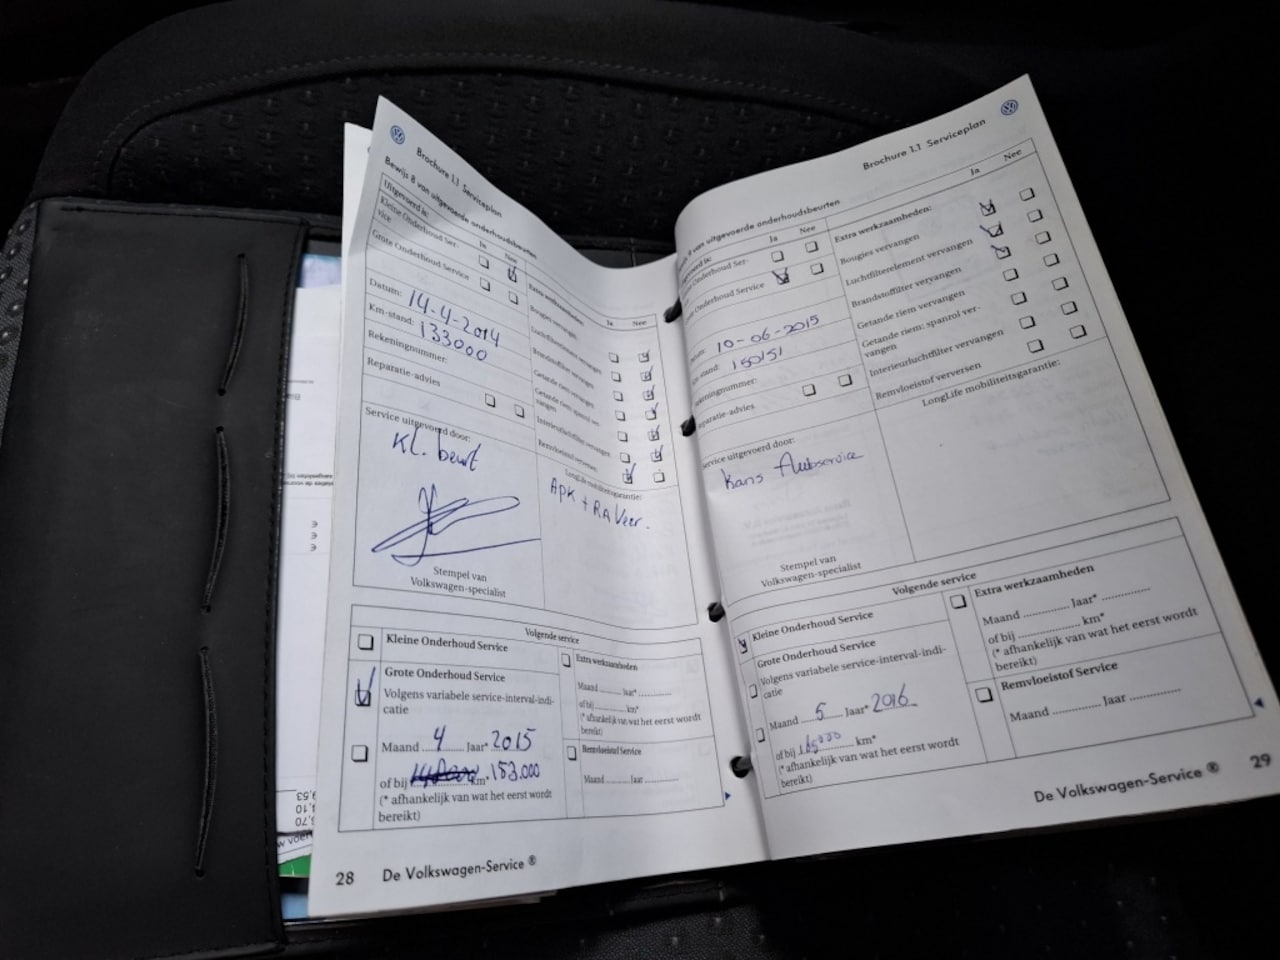 Brochure 1.1 Serviceplan
Bewijs 8 van uitgevoerde onderhoudsbeurten
Uitgevoerd is:
Ja Nee
Kleine Onderhoud Ser-
vice
Grote Onderhoud Service
Datum: 14-4-2014
Km-stand: 133000
Rekeningnummer:
Reparatie-advies
Extra werkzaamheden:
Ja Nee
Bougies vervangen
Luchtfilterelement vervangen
Brandstoffilter vervangen
Getande riem vervangen
Getande riem: spanrol ver-
vangen
Interieurluchtfilter vervangen
Remvloeistof verversen
Service uitgevoerd door:
Kl. beurt
Stempel van
Volkswagen-specialist
LongLife mobiliteitsgarantie:
APK +
Volgende service
Kleine Onderhoud Service
Grote Onderhoud Service
Volgens variabele service-interval-indi-
catie
Maand 4 Jaar* 2015
of bij km* 153.000
(* afhankelijk van wat het eerst wordt
bereikt)
Extra werkzaamheden
Maand Jaar*
of bij km*
(* afhankelijk van wat het eerst wordt
bereikt)
Remvloeistof Service
Maand Jaar
28 De Volkswagen-Service ®
Brochure 1.1 Serviceplan
van uitgevoerde onderhoudsbeurten
Ja Nee
Onderhoud Ser-
Onderhoud Service
10-06-2015
stand: 150151
Reparatie-advies
Extra werkzaamheden:
Ja Nee
Bougies vervangen
Luchtfilterelement vervangen
Brandstoffilter vervangen
Getande riem vervangen
Getande riem: spanrol ver-
vangen
Interieurluchtfilter vervangen
Remvloeistof verversen
Service uitgevoerd door:
Kans Autoservice
Stempel van
Volkswagen-specialist
LongLife mobiliteitsgarantie:
Volgende service
Kleine Onderhoud Service
Grote Onderhoud Service
Volgens variabele service-interval-indi-
catie
Maand 5 Jaar* 2016
of bij 165000 km*
(* afhankelijk van wat het eerst wordt
bereikt)
Extra werkzaamheden
Maand Jaar*
of bij km*
(* afhankelijk van wat het eerst wordt
bereikt)
Remvloeistof Service
Maand Jaar
De Volkswagen-Service ® 29